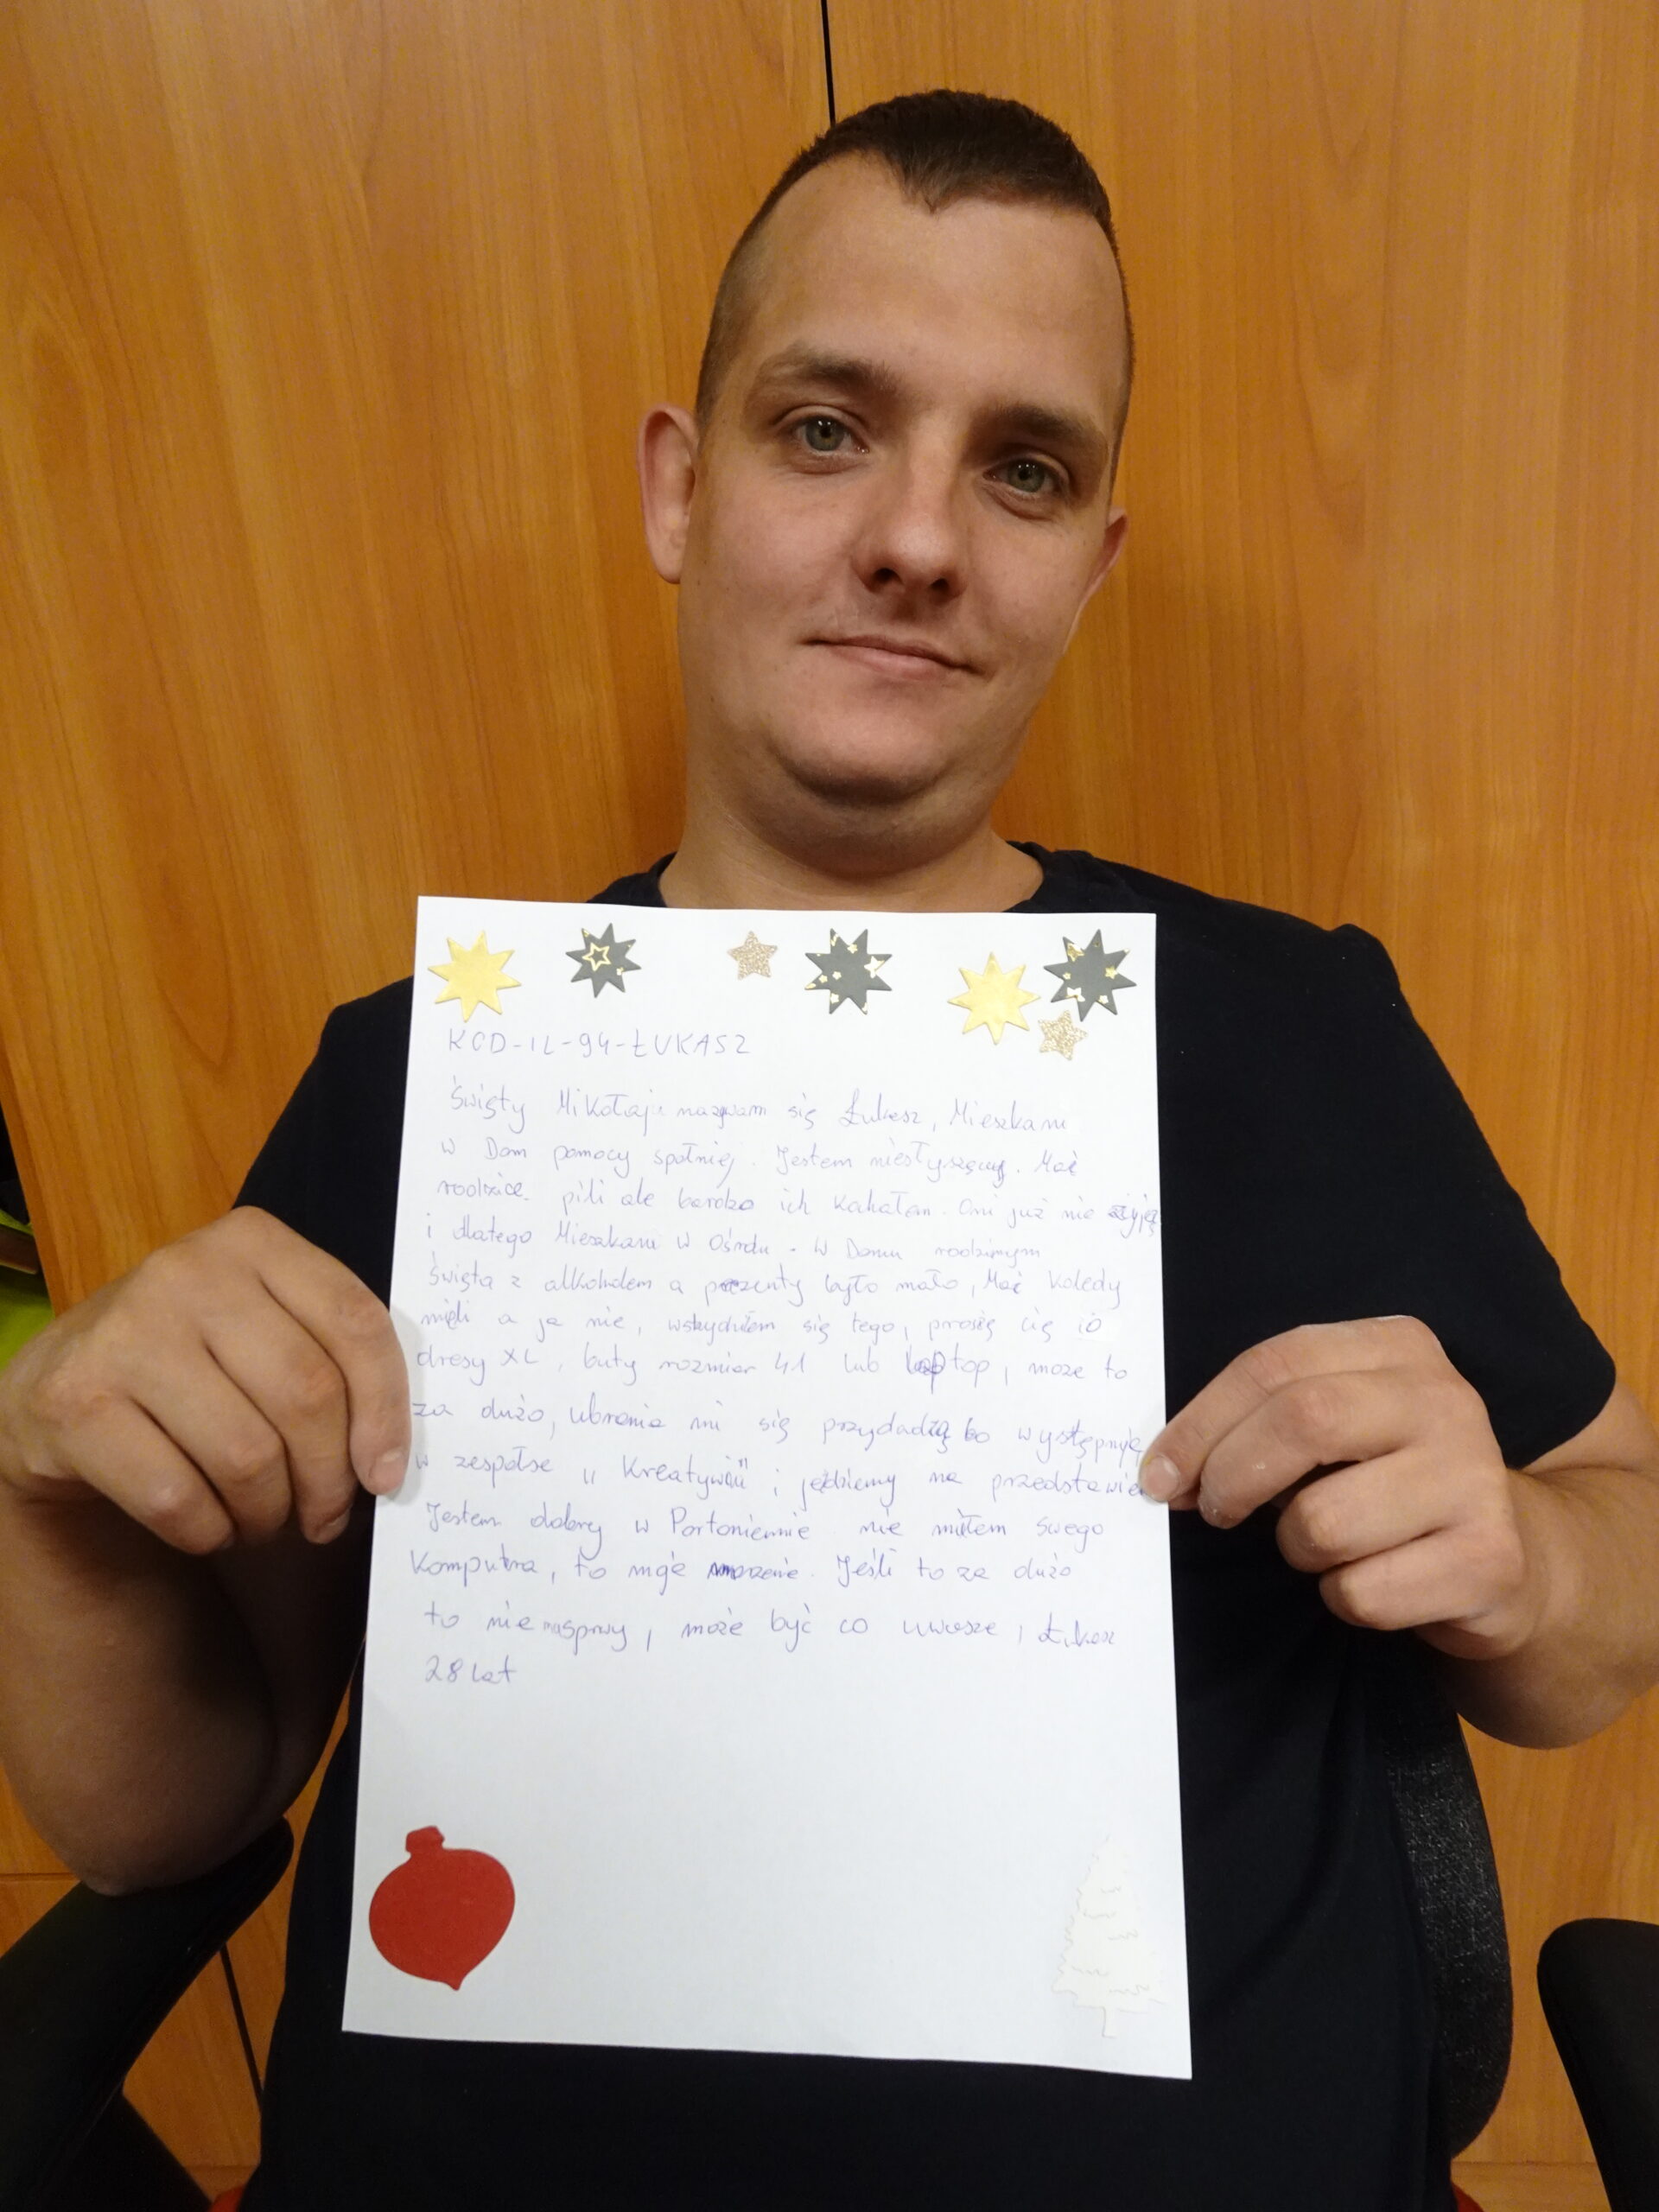 KCD-IL-94-ŁUKASZ
Święty Mikołaju nazywam się Łukasz, Mieszkam
w Dom pomocy społniej. Jestem niesłyszący. Moi
rodzice pili ale bardzo ich kochałem. Oni już nie żyją
i dlatego Mieszkam w Ośrodu. W Domu rodzinnym
święta z alkoholem a prezenty było mało, Moi koledy
mieli a ja nie, wstydiłem się tego, proszę cię o
dresy XL, buty rozmiar 41 lub laptop, może to
za dużo, ubrania mi się przydadzą bo występuję
w zespolse "Kreatywni" i jeździemy na przedstawien
Jestem dobry w nie miałem swego
Komputra, to moje marzenie. Jeśli to za dużo
to nie masprwy, może być co uwasze, Łukasz
28 lat